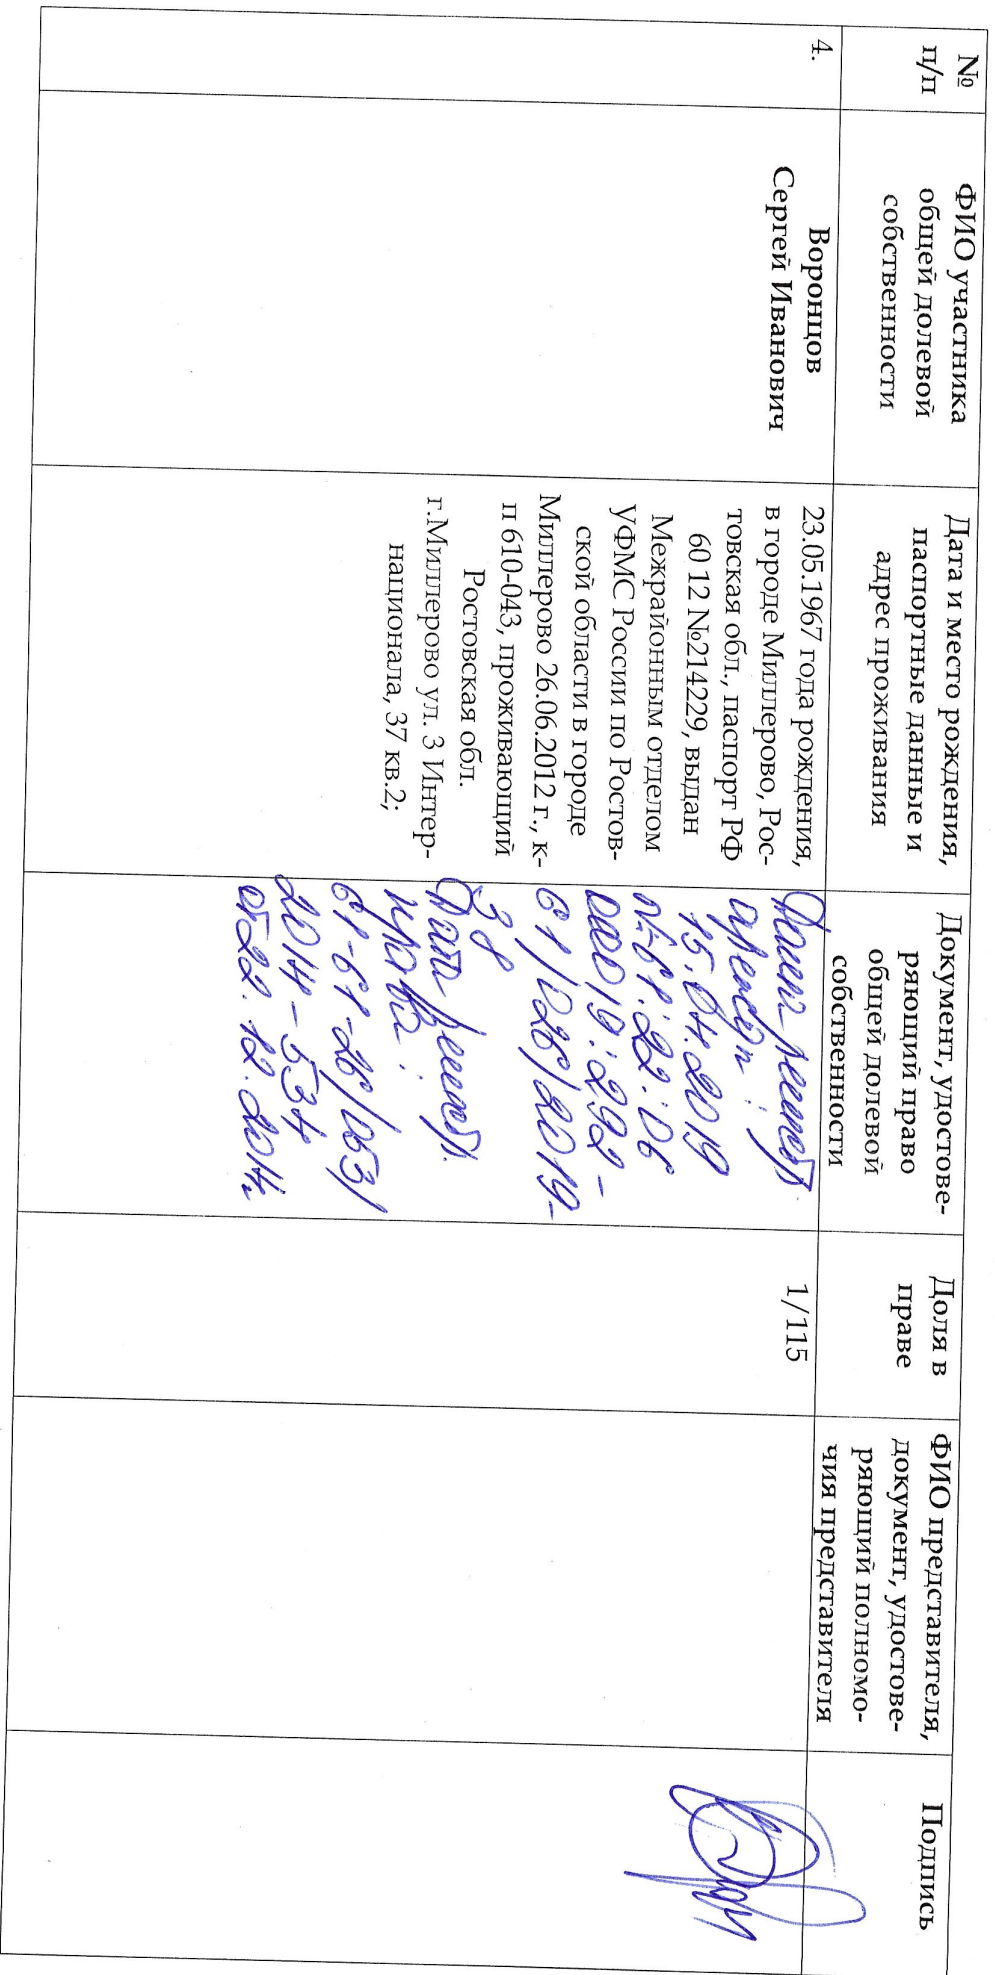 №
п/п
ФИО участника
общей долевой
собственности
Дата и место рождения,
паспортные данные и
адрес проживания
Документ, удостове-
ряющий право
общей долевой
собственности
Доля в
праве
ФИО представителя,
документ, удостове-
ряющий полномо-
чия представителя
Подпись
4.
Воронцов
Сергей Иванович
23.05.1967 года рождения,
в городе Миллерово, Рос-
товская обл., паспорт РФ
60 12 №214229, выдан
Межрайонным отделом
УФМС России по Ростов-
ской области в городе
Миллерово 26.06.2012 г., к-
п 610-043, проживающий
Ростовская обл.
г.Миллерово ул. 3 Интер-
национала, 37 кв.2;
Дата
аренды:
15.04.2019
№ 61:22:06
00019:292-
61/026/2019-
38
Дата
права:
61-61-26/053/
2014-534
от 22.12.2014г.
1/115